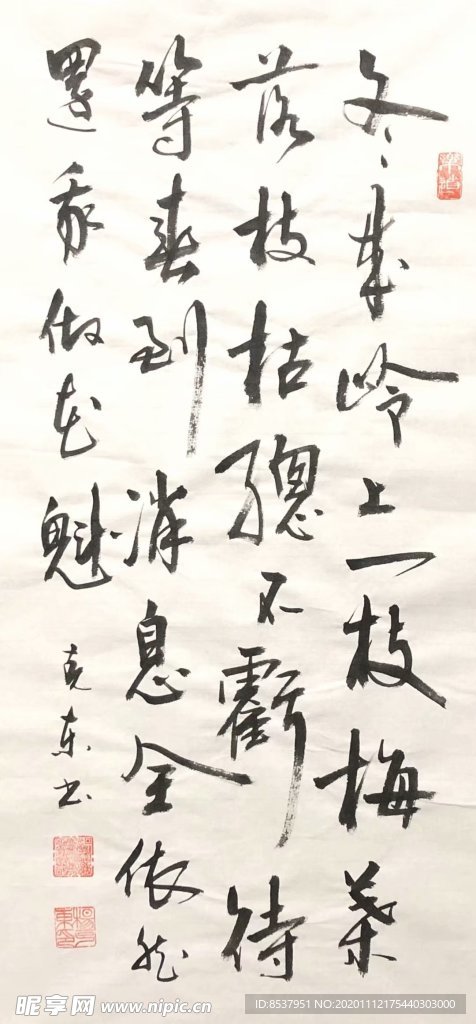 冬来岭上一枝梅葉
落枝枯總不虧待
等春到消息全依然
還我做花魁
克东书
昵享网 www.nipic.cn
ID:8537951 NO:20201112175440303000